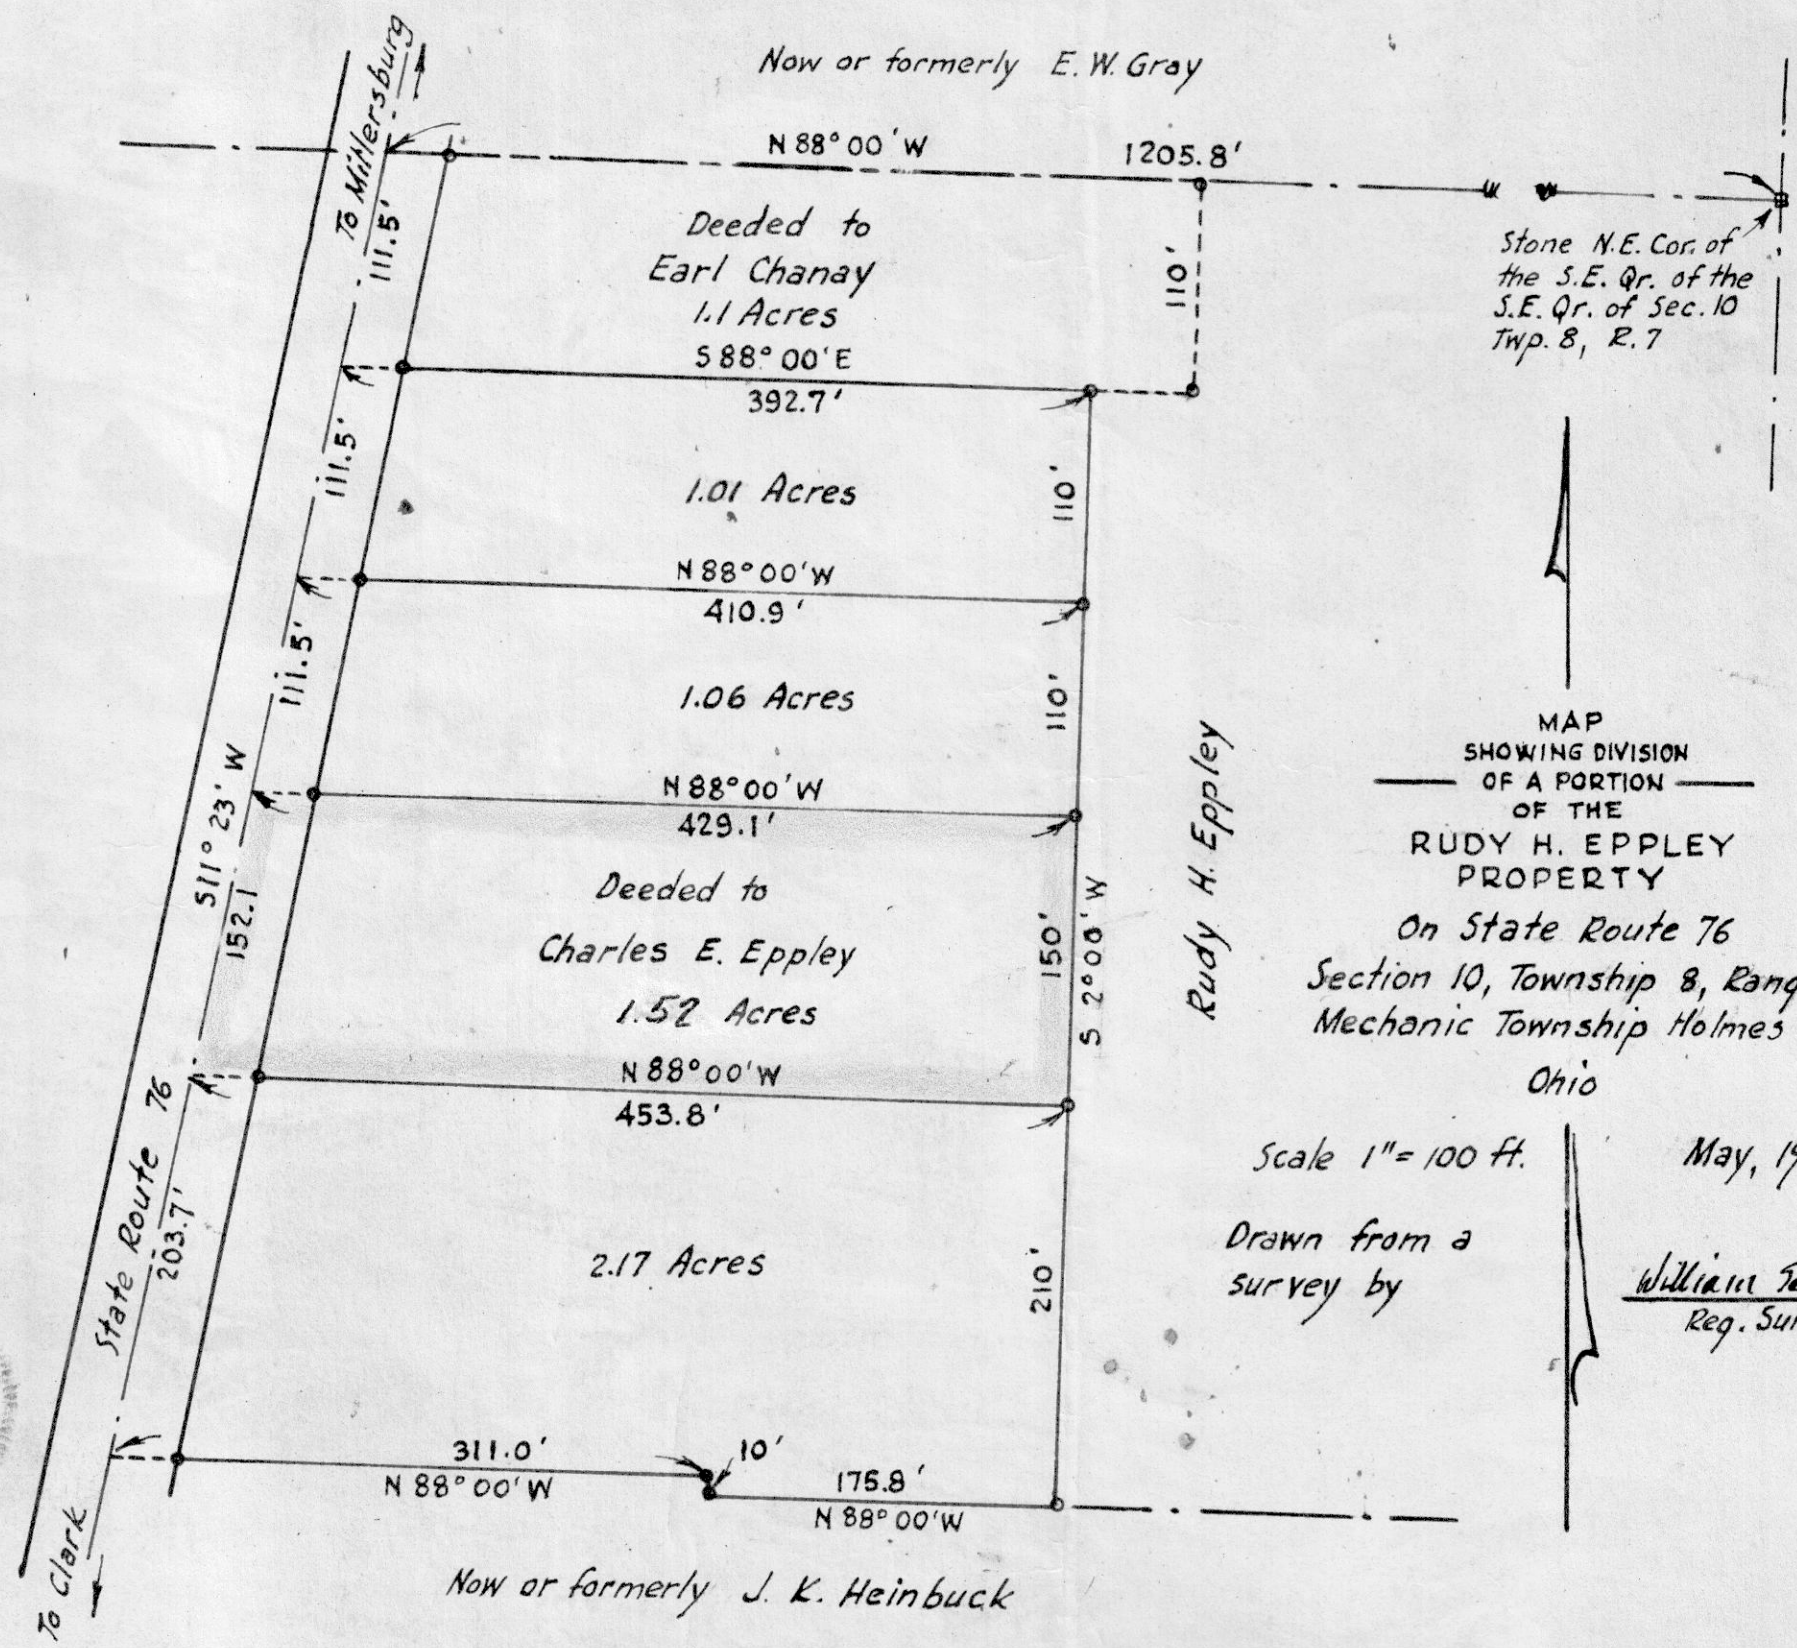 Now or formerly E. W. Gray
To Millersburg
N 88° 00' W 1205.8'
111.5'
Deeded to
Earl Chanay
1.1 Acres
110'
Stone N.E. Cor. of
the S.E. Qr. of the
S.E. Qr. of Sec. 10
Twp. 8, R. 7
S 88° 00' E
392.7'
111.5'
1.01 Acres
110'
N 88° 00' W
410.9'
111.5'
1.06 Acres
110'
N 88° 00' W
429.1'
S 11° 23' W
152.1
Deeded to
Charles E. Eppley
1.52 Acres
150'
S 2° 00' W
Rudy H. Eppley
N 88° 00' W
453.8'
State Route 76
203.7'
2.17 Acres
210'
311.0'
N 88° 00' W
10'
175.8'
N 88° 00' W
To Clark
Now or formerly J. K. Heinbuck
MAP
SHOWING DIVISION
OF A PORTION
OF THE
RUDY H. EPPLEY
PROPERTY
On State Route 76
Section 10, Township 8, Rang
Mechanic Township Holmes
Ohio
Scale 1" = 100 ft.
May, 19
Drawn from a
survey by
William
Reg. Sur